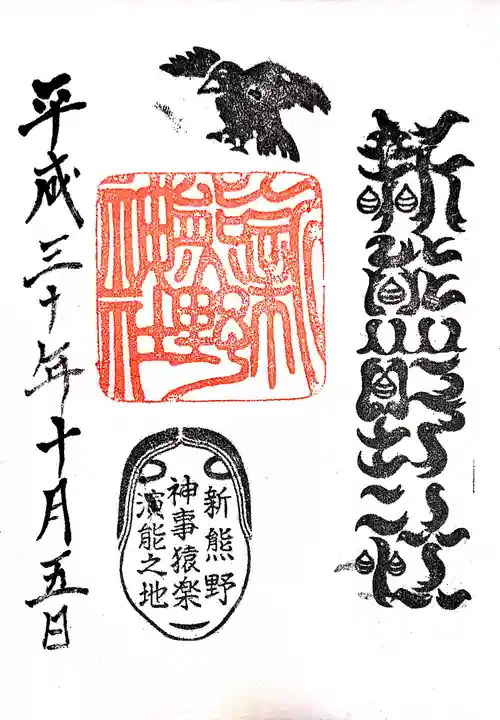 新熊野
新熊野神社
新熊野
神事猿楽
演能之地
平成三十年十月五日